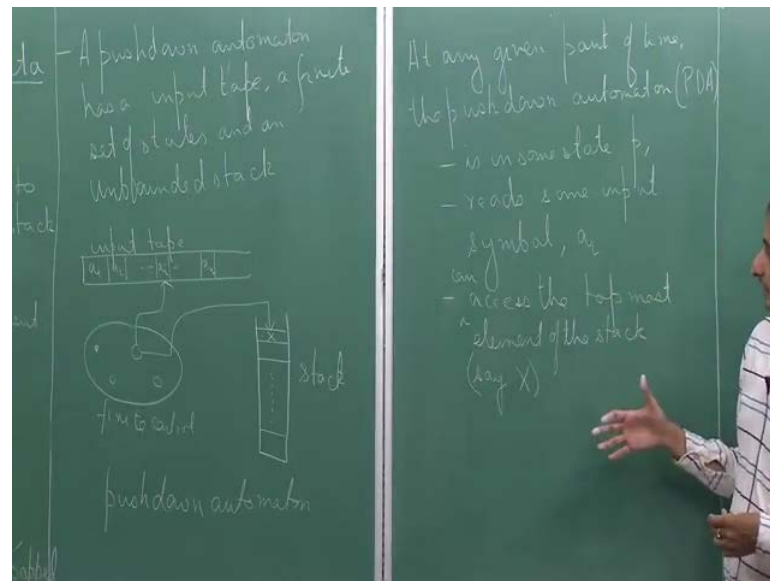 ta
to
tack
- A pushdown automaton
has a input tape, a finite
set of states and an
unbounded stack
input tape
a₁ a₂ -- aᵢ -
X
stack
finite control
pushdown automaton
At any given point of time,
the pushdown automaton (PDA)
- is in some state p,
- reads some input
symbol, aᵢ
can
- access the top most
element of the stack
(say X)